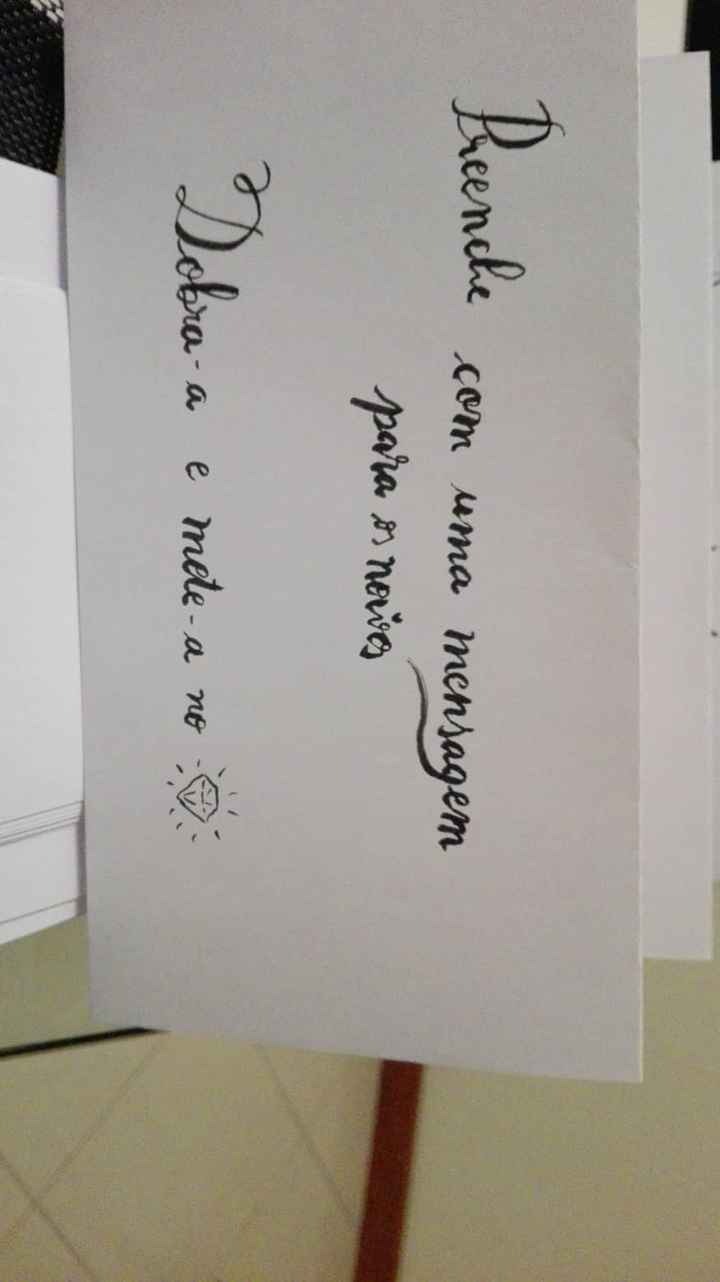 Preenche com uma mensagem
para os noivos
Dobra-a e mete-a no